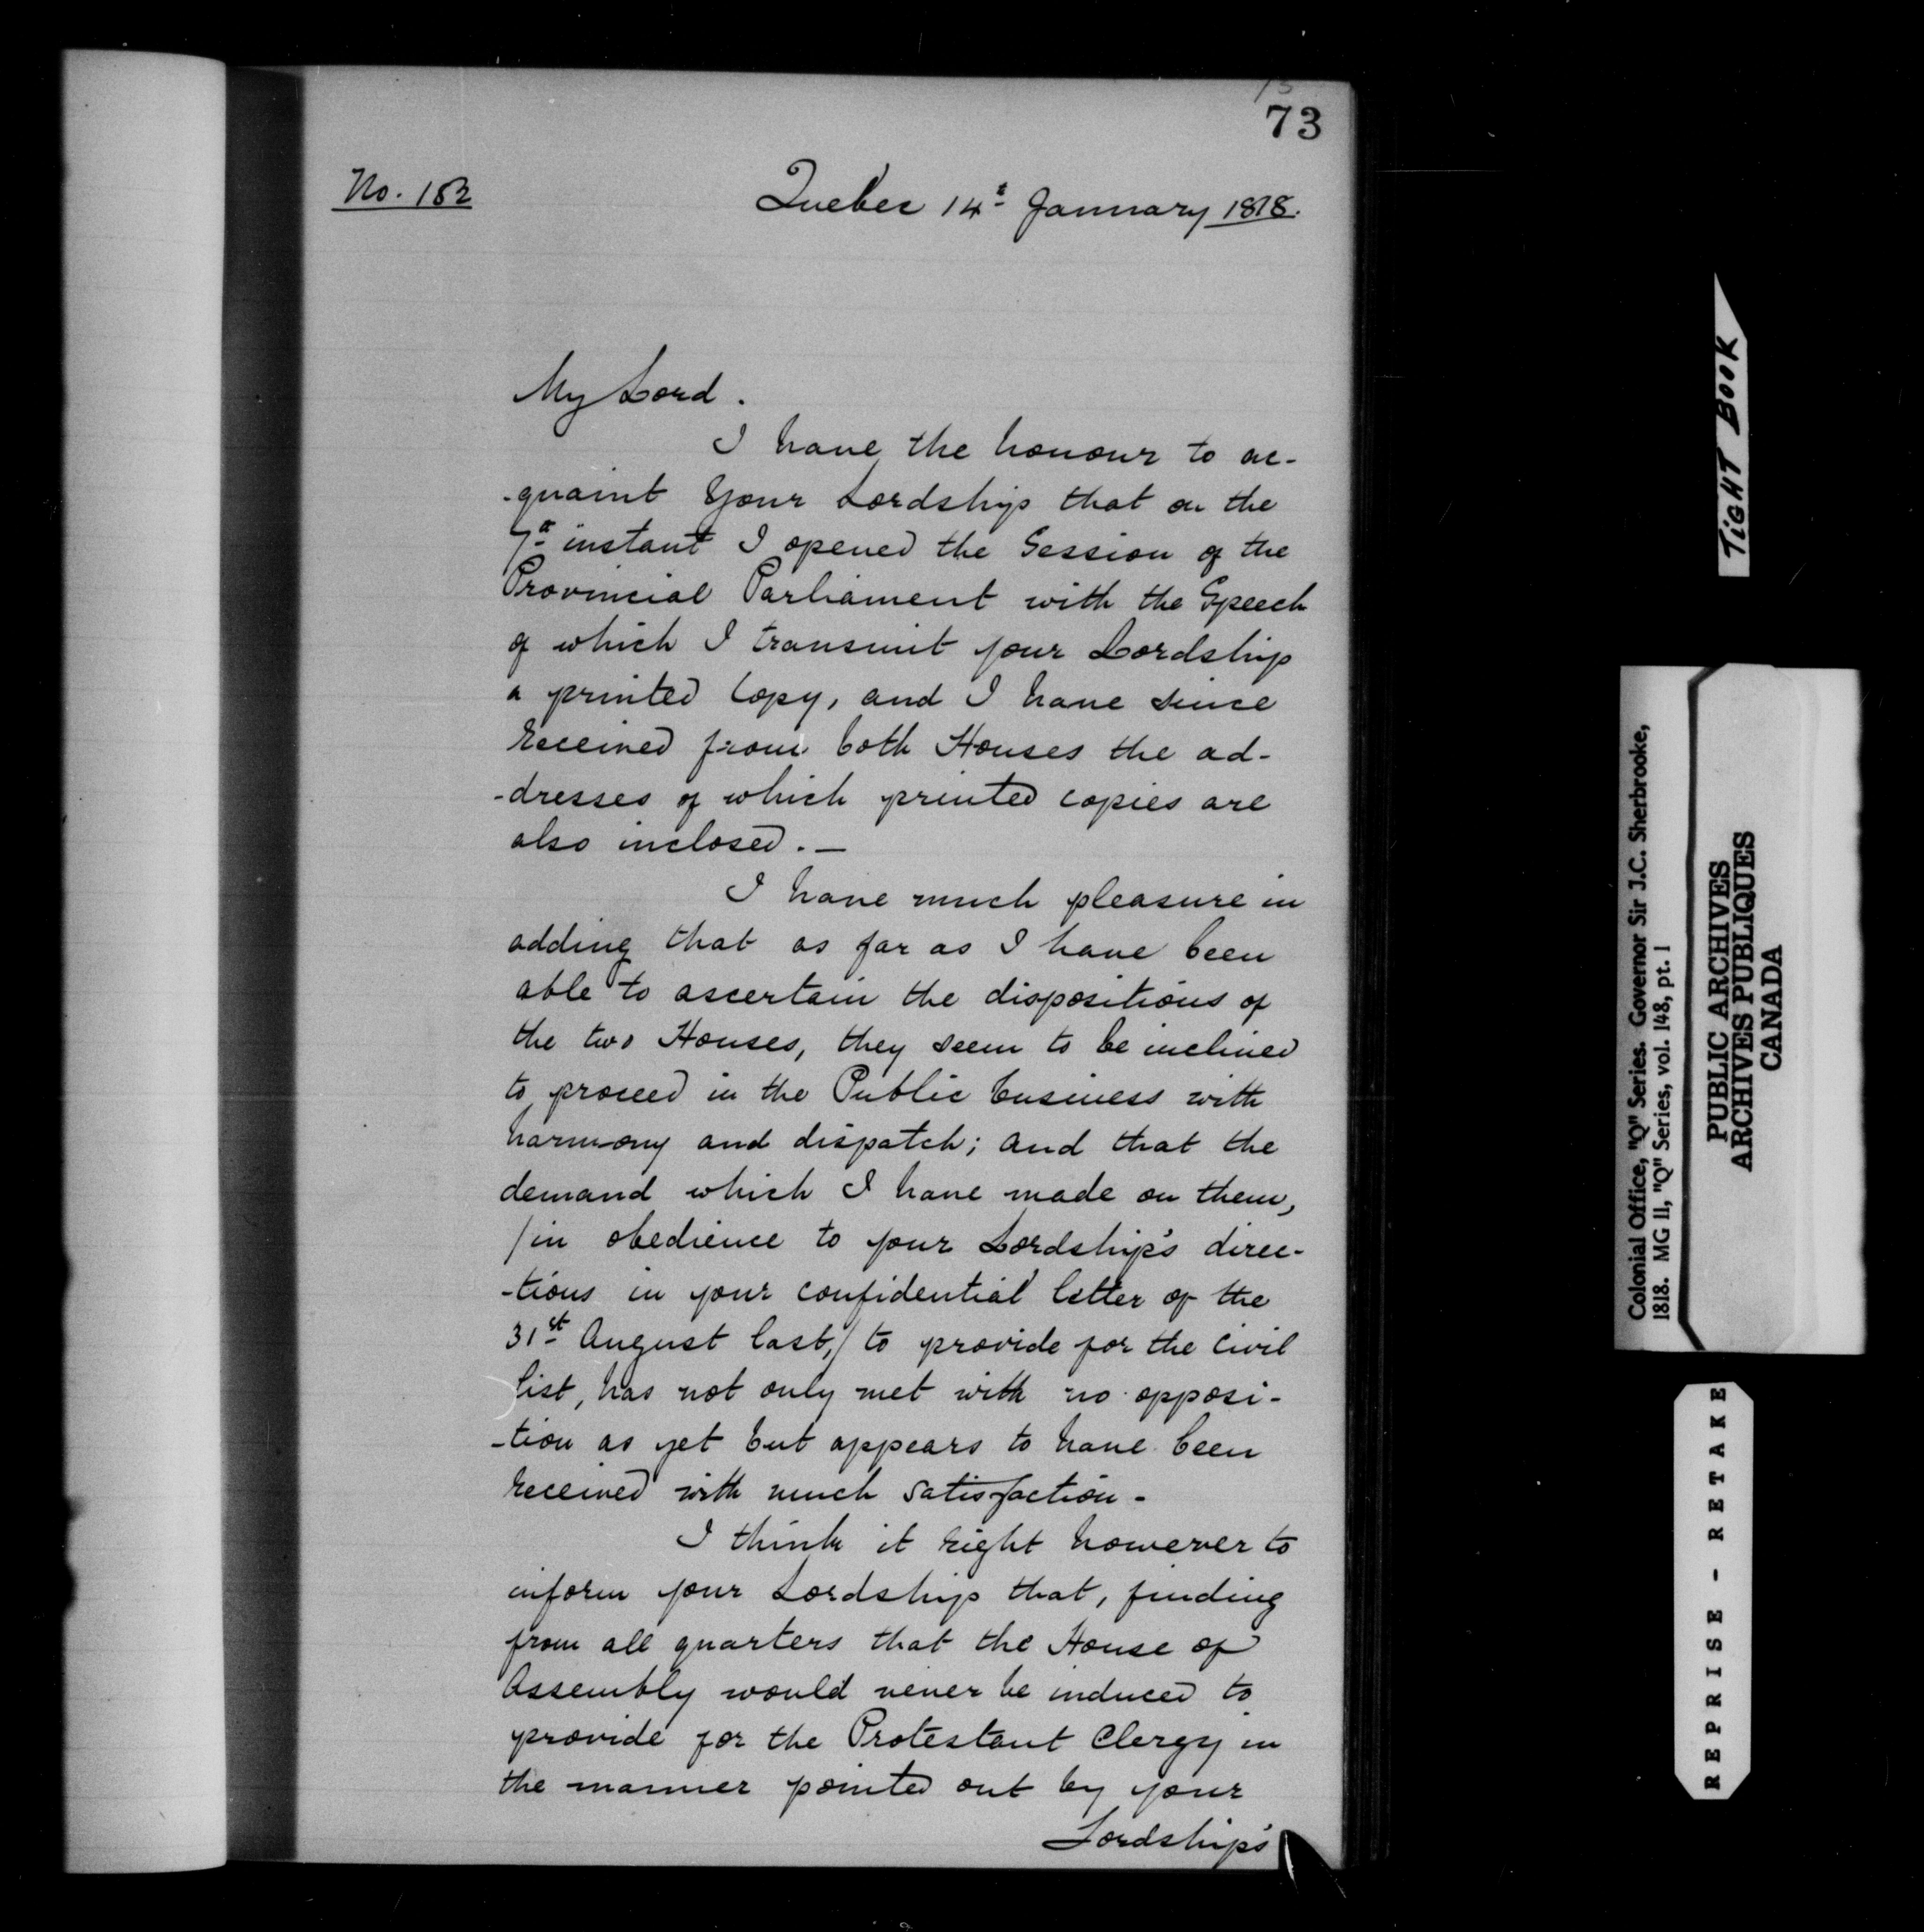 73
No. 152
Quebec 14th January 1818.
My Lord.
I have the honour to ac-
-quaint Your Lordship that on the
7th instant I opened the Session of the
Provincial Parliament with the Speech
of which I transmit your Lordship
a printed Copy, and I have since
received from both Houses the ad-
-dresses of which printed copies are
also inclosed. —
I have much pleasure in
adding that as far as I have been
able to ascertain the dispositions of
the two Houses, they seem to be inclined
to proceed in the Public business with
harmony and dispatch; and that the
demand which I have made on them,
/in obedience to your Lordship's direc-
-tions in your confidential letter of the
31st August last,/ to provide for the Civil
list, has not only met with no opposi-
-tion as yet but appears to have been
received with much satisfaction -
I think it right however to
inform your Lordship that, finding
from all quarters that the House of
Assembly would never be induced to
provide for the Protestant Clergy in
the manner pointed out by your
Lordship's
TIGHT BOOK
Colonial Office, "Q" Series. Governor Sir J.C. Sherbrooke,
1818. MG 11, "Q" Series, vol. 148, pt. 1
PUBLIC ARCHIVES
ARCHIVES PUBLIQUES
CANADA
REPRISE - RETAKE